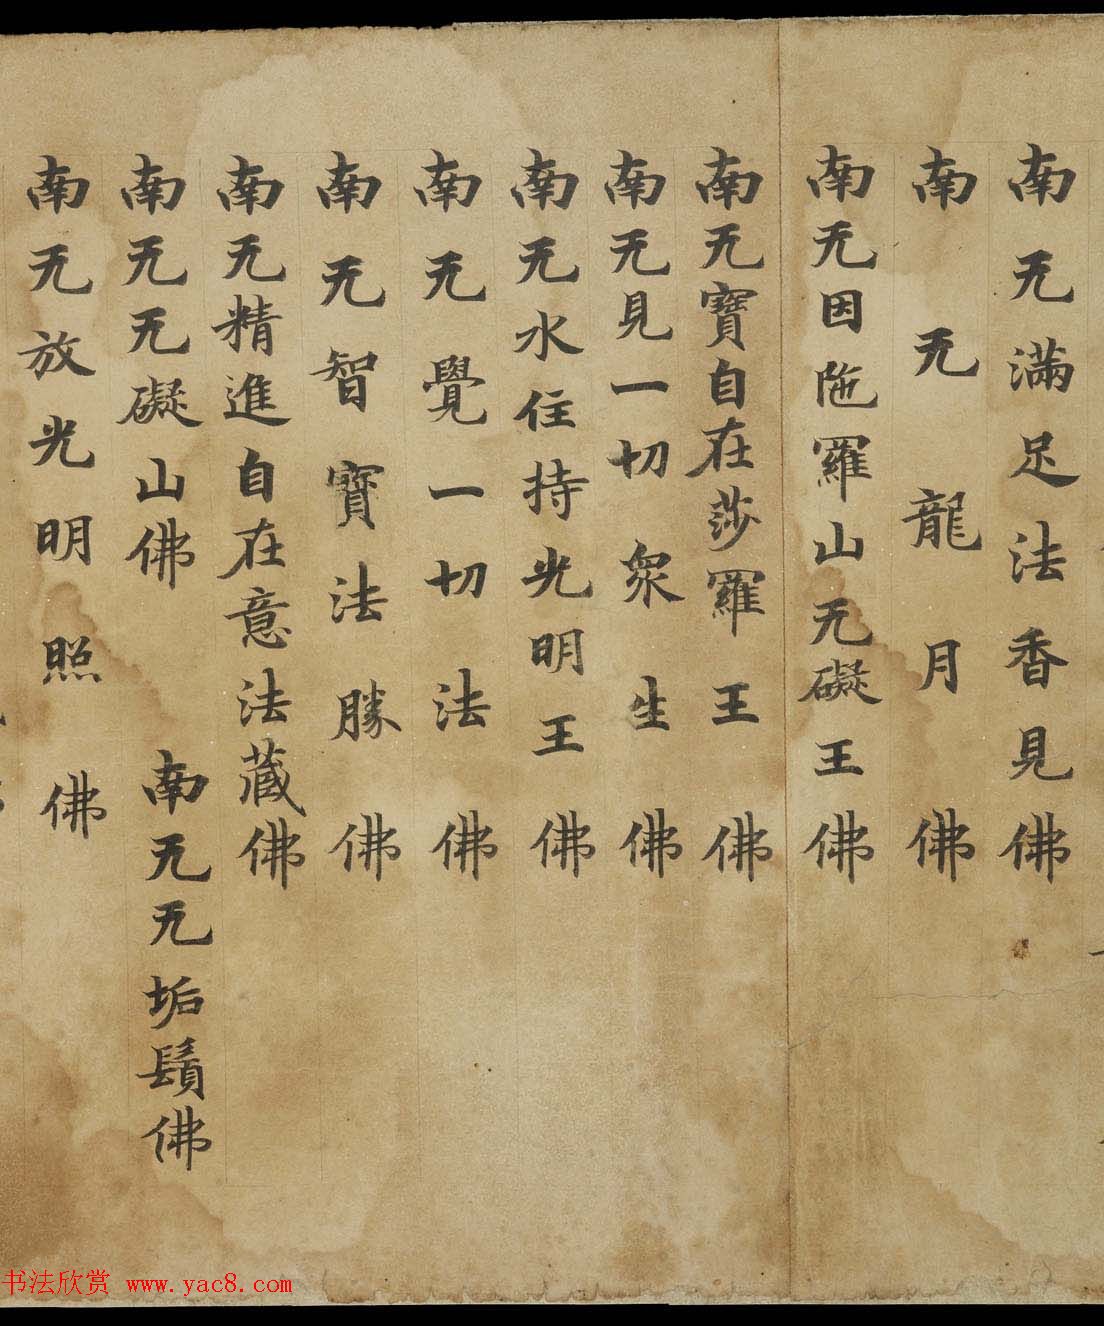 南无滿足法香見佛
南无龍月佛
南无因陁羅山无礙王佛
南无寶自在莎羅王佛
南无見一切眾生佛
南无水住持光明王佛
南无覺一切法佛
南无智寶法勝佛
南无精進自在意法藏佛
南无无礙山佛 南无无垢鬚佛
南无放光明照佛
书法欣赏 www.yac8.com